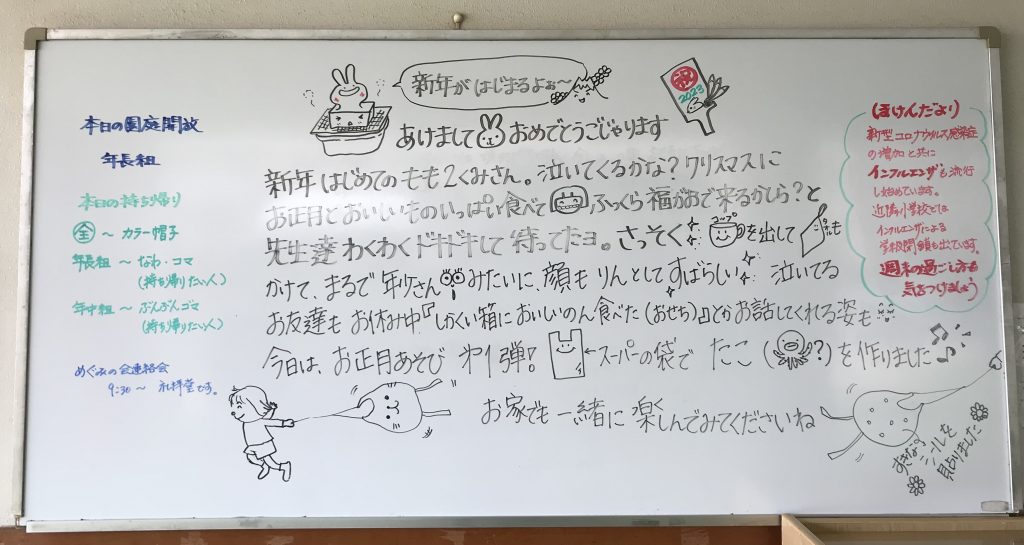 新年がはじまるよぉ〜
祝
2023
あけましておめでとうごじゃります
本日の園庭開放
年長組
本日の持ち帰り
全〜カラー帽子
年長組〜なわ・コマ
(持ち帰りたい人)
年中組〜ぶんぶんゴマ
(持ち帰りたい人)
めぐみの会連絡会
9:30〜礼拝堂です。
新年はじめてのもも2くみさん。泣いてくるかな?クリスマスに
お正月とおいしいものいっぱい食べてふっくら福がおで来るかしら?と
先生達わくわくドキドキして待ってたョ。さっそくコップを出して も
かけて、まるで年少さんみたいに、顔もりんとしてすばらしい 泣いてる
お友達もお休み中『しかくい箱においしいのん食べた(おせち)』とかお話してくれる姿も
今日は、お正月あそび 第1弾!←スーパーの袋で たこ(?)を作りました
お家でも一緒に楽しんでみてくださいね
すきなの
シールを
貼りました
(ほけんだより)
新型コロナウイルス感染症
の増加と共に
インフルエンザも流行
し始めています。
近隣小学校では
インフルエンザによる
学校閉鎖も出ています。
週末の過ごし方も
気をつけましょう